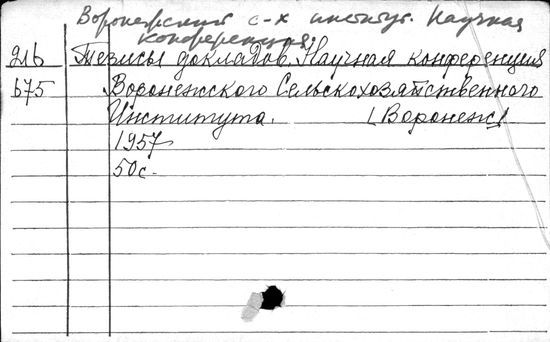 Воронежский с-х институт. Научная
конференция.
216 Тезисы докладов. Научная конференция
675 Воронежского Сельскохозяйственного
Института. (Воронеж)
1957
50с.